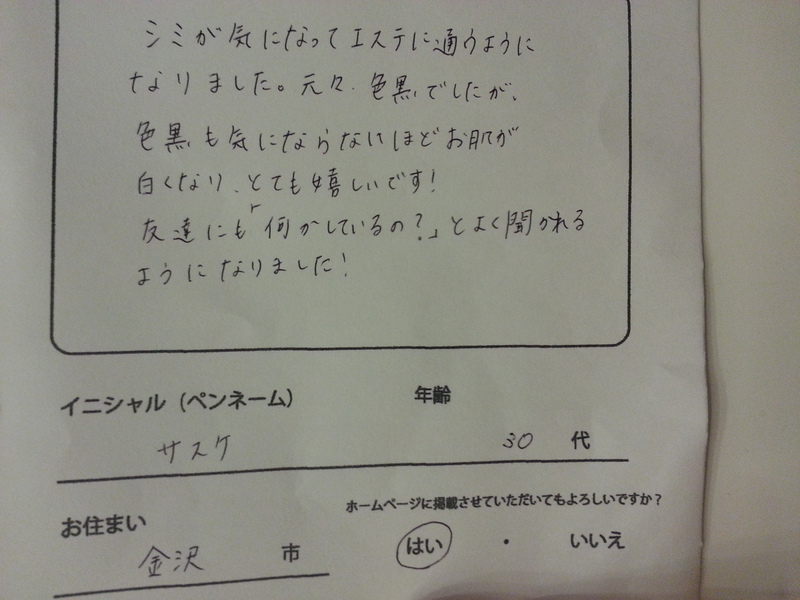 シミが気になってエステに通うように
なりました。元々、色黒でしたが、
色黒も気にならないほどお肌が
白くなり、とても嬉しいです!
友達にも「何かしているの?」とよく聞かれる
ようになりました!
イニシャル(ペンネーム) 年齢
サスケ 30 代
ホームページに掲載させていただいてもよろしいですか?
お住まい
はい ・ いいえ
金沢 市